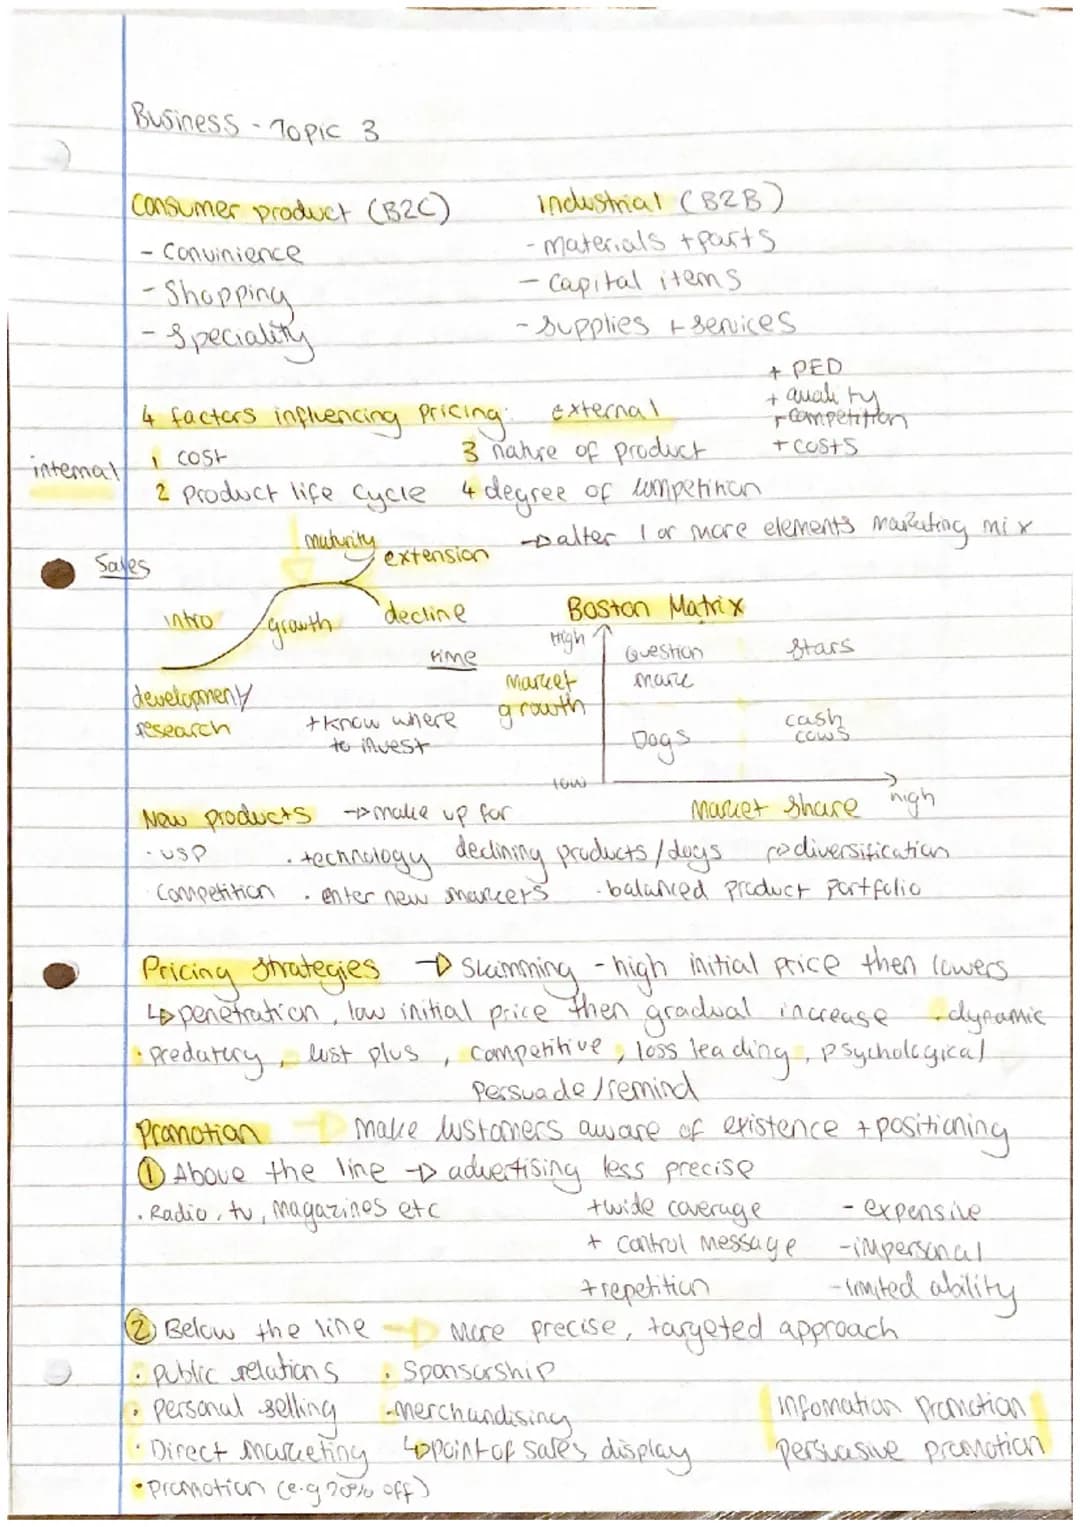 Business - Topic 3
Consumer product (B2C)    Industrial (B2B)
- Convinience    - materials + parts
- Shopping    - Capital items
- Speciality    - Supplies + services
+ PED
+ quality
+ competition
+ costs
4 factors influencing pricing:    External
internal    1 cost    3 nature of product
2 Product life cycle    4 degree of competition
→ alter 1 or more elements marketing mix
Sales    maturity    extension
intro    growth    decline
time
development/
research
+ know where
to invest
Boston Matrix
High    Question    Stars
mark
market
growth
Dogs    cash
cows
low
Market Share    high
New products → make up for
· USP    · technology    declining products/dogs    → diversification
Competition    · enter new markets    · balanced product portfolio
Pricing strategies → Skimming - high initial price then lowers
↳ penetration, low initial price then gradual increase    · dynamic
· predatory, cost plus, competitive, loss leading, psychological
Persuade/remind
Promotion → make customers aware of existence + positioning
① Above the line → advertising less precise
· Radio, tv, magazines etc    + wide coverage    - expensive
+ control message    - impersonal
+ repetition    - limited ability
② Below the line → More precise, targeted approach
· public relations    · Sponsorship
· personal selling    - merchandising    Infomation promotion
· Direct marketing    ↳ point of sales display    persuasive promotion
· promotion (e.g 20% off)